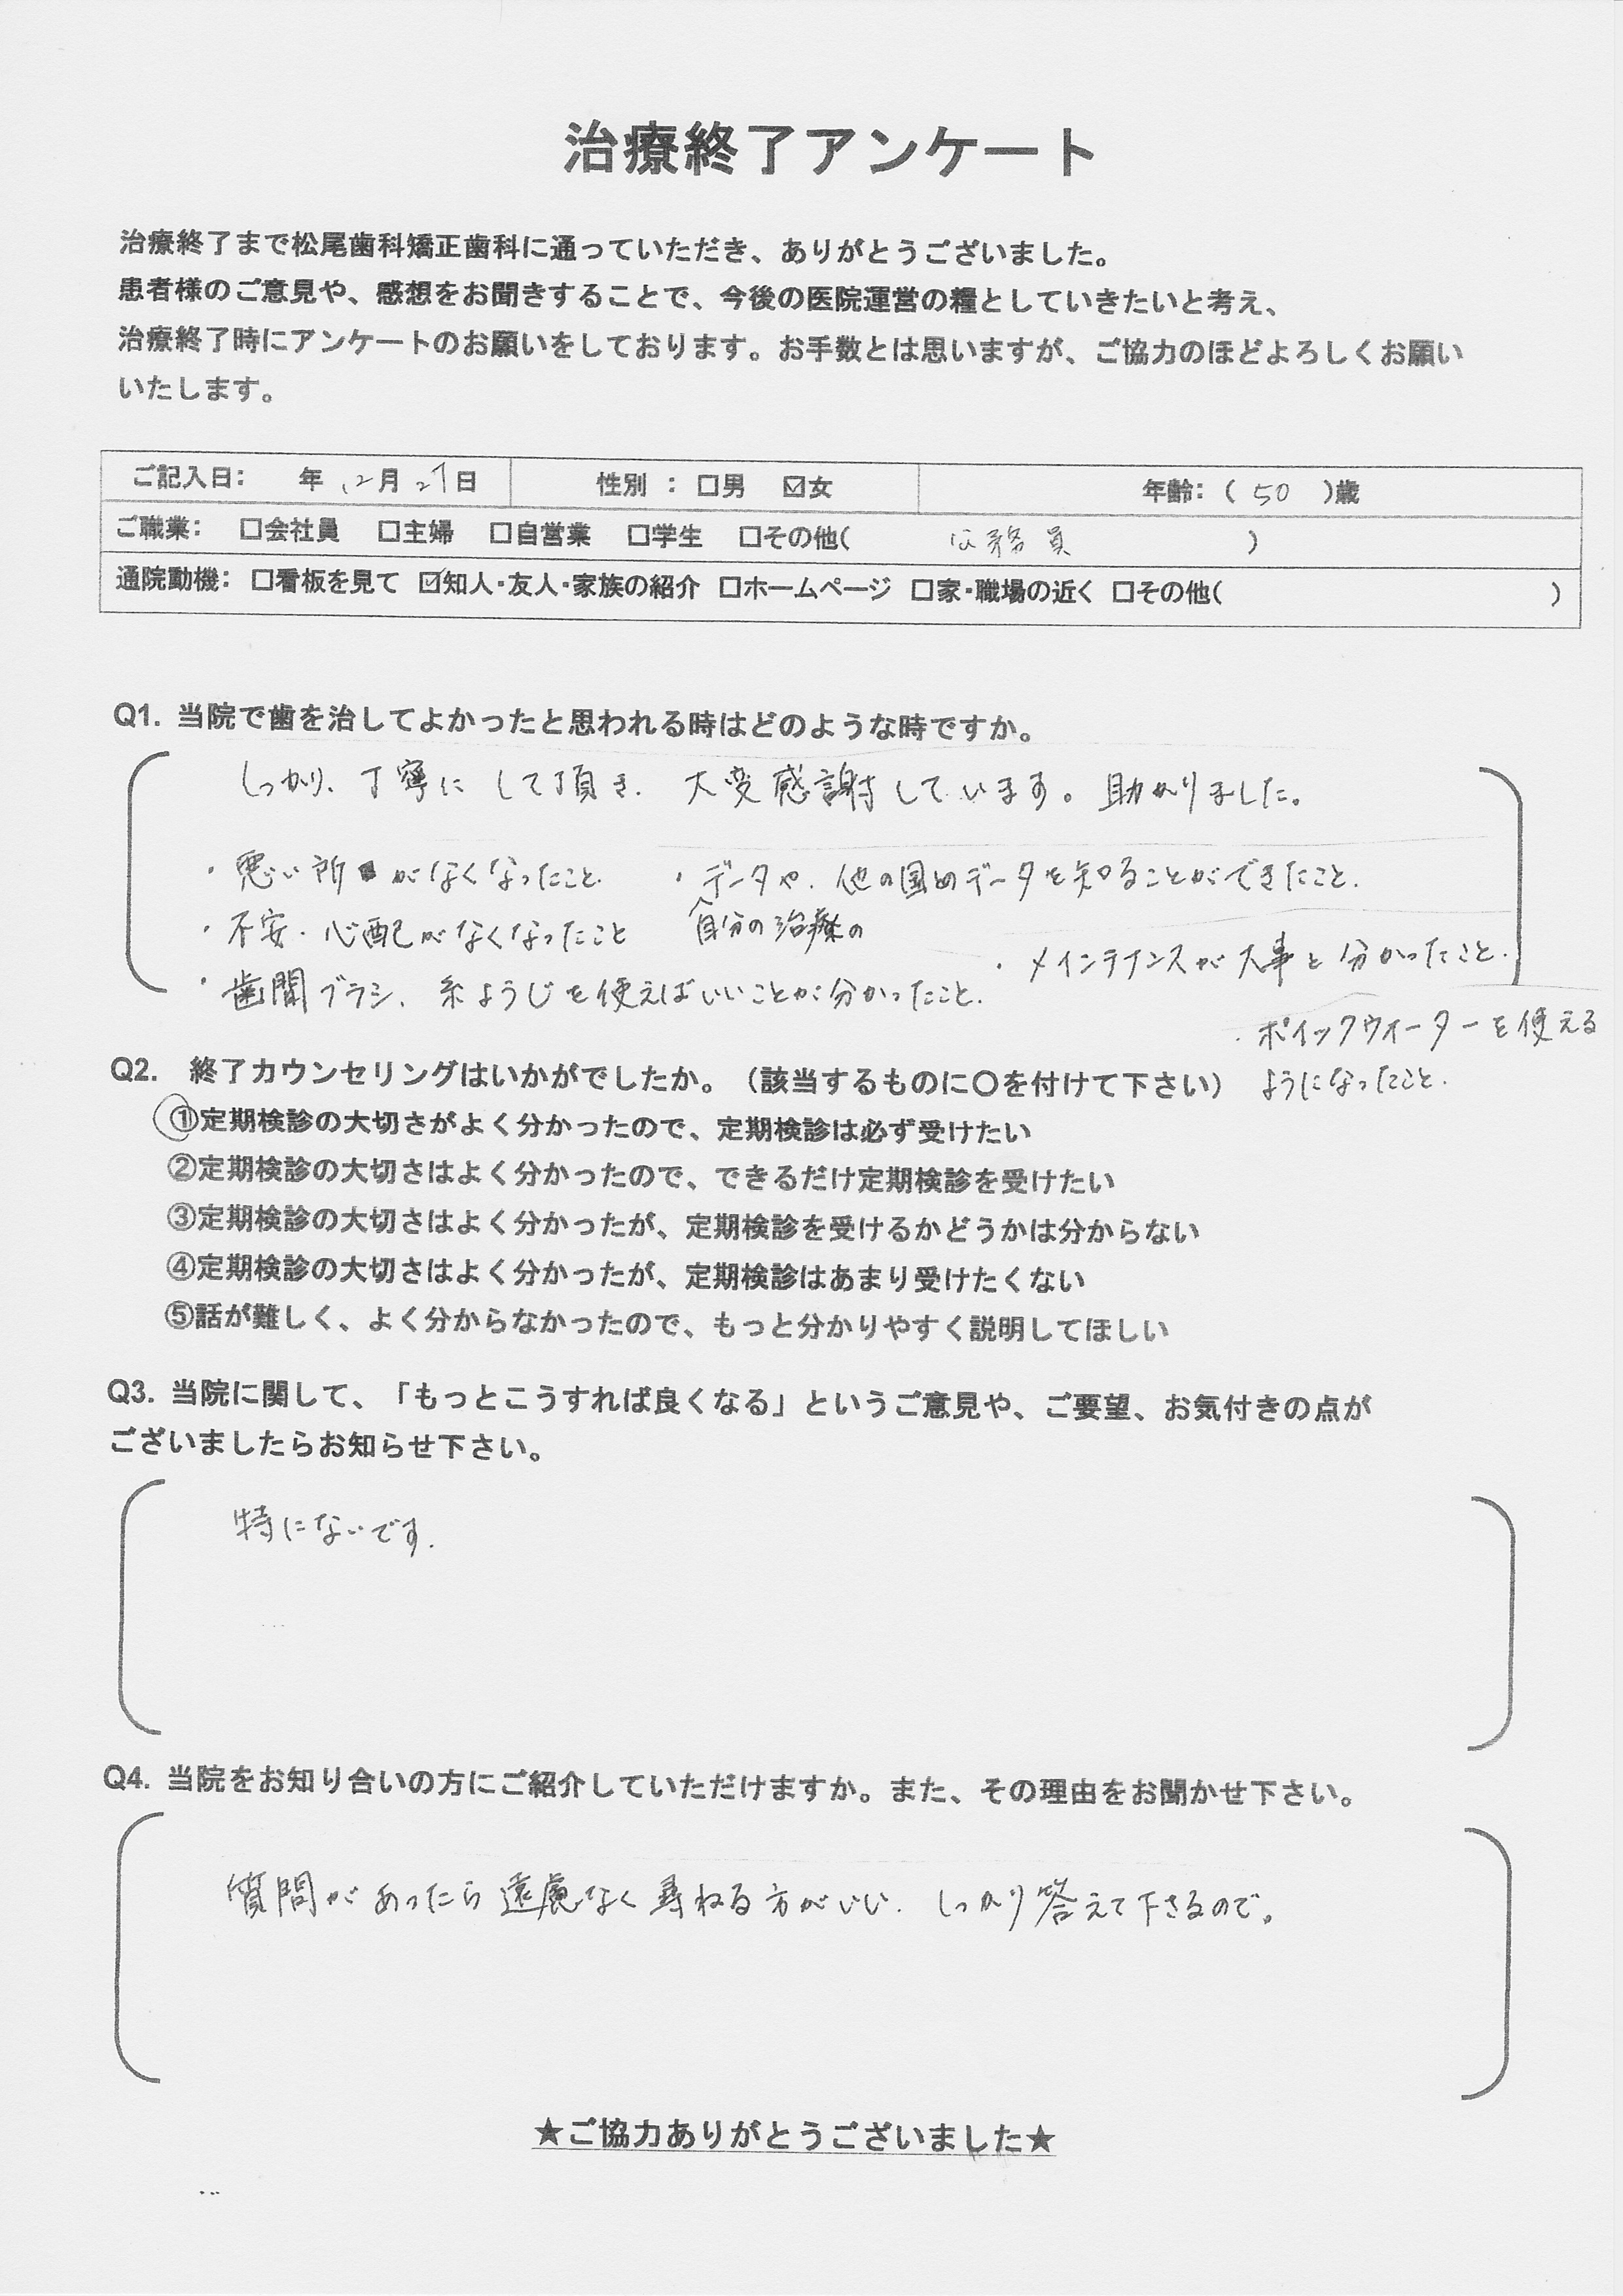 治療終了アンケート
治療終了まで松尾歯科矯正歯科に通っていただき、ありがとうございました。
患者様のご意見や、感想をお聞きすることで、今後の医院運営の糧としていきたいと考え、
治療終了時にアンケートのお願いをしております。お手数とは思いますが、ご協力のほどよろしくお願い
いたします。
ご記入日: 年 12月 27日 性別 : □男 ☑女 年齢:( 50 )歳
ご職業: □会社員 □主婦 □自営業 □学生 □その他( 公務員 )
通院動機: □看板を見て ☑知人・友人・家族の紹介 □ホームページ □家・職場の近く □その他( )
Q1. 当院で歯を治してよかったと思われる時はどのような時ですか。
しっかり、丁寧に して頂き、大変感謝しています。助かりました。
・悪い所 がなくなったこと. ・データや、他の国のデータを知ることができたこと.
・不安・心配がなくなったこと 自分の治療の
・メインテナンスが大事と分かったこと.
・歯間ブラシ、糸ようじを使えばいいことが分かったこと.
・ポイックウォーターを使える
ようになったこと.
Q2. 終了カウンセリングはいかがでしたか。(該当するものに〇を付けて下さい)
①定期検診の大切さがよく分かったので、定期検診は必ず受けたい
②定期検診の大切さはよく分かったので、できるだけ定期検診を受けたい
③定期検診の大切さはよく分かったが、定期検診を受けるかどうかは分からない
④定期検診の大切さはよく分かったが、定期検診はあまり受けたくない
⑤話が難しく、よく分からなかったので、もっと分かりやすく説明してほしい
Q3. 当院に関して、「もっとこうすれば良くなる」というご意見や、ご要望、お気付きの点が
ございましたらお知らせ下さい。
特にないです.
Q4. 当院をお知り合いの方にご紹介していただけますか。また、その理由をお聞かせ下さい。
質問があったら遠慮なく尋ねる方がいい. しっかり答えて下さるので。
★ご協力ありがとうございました★